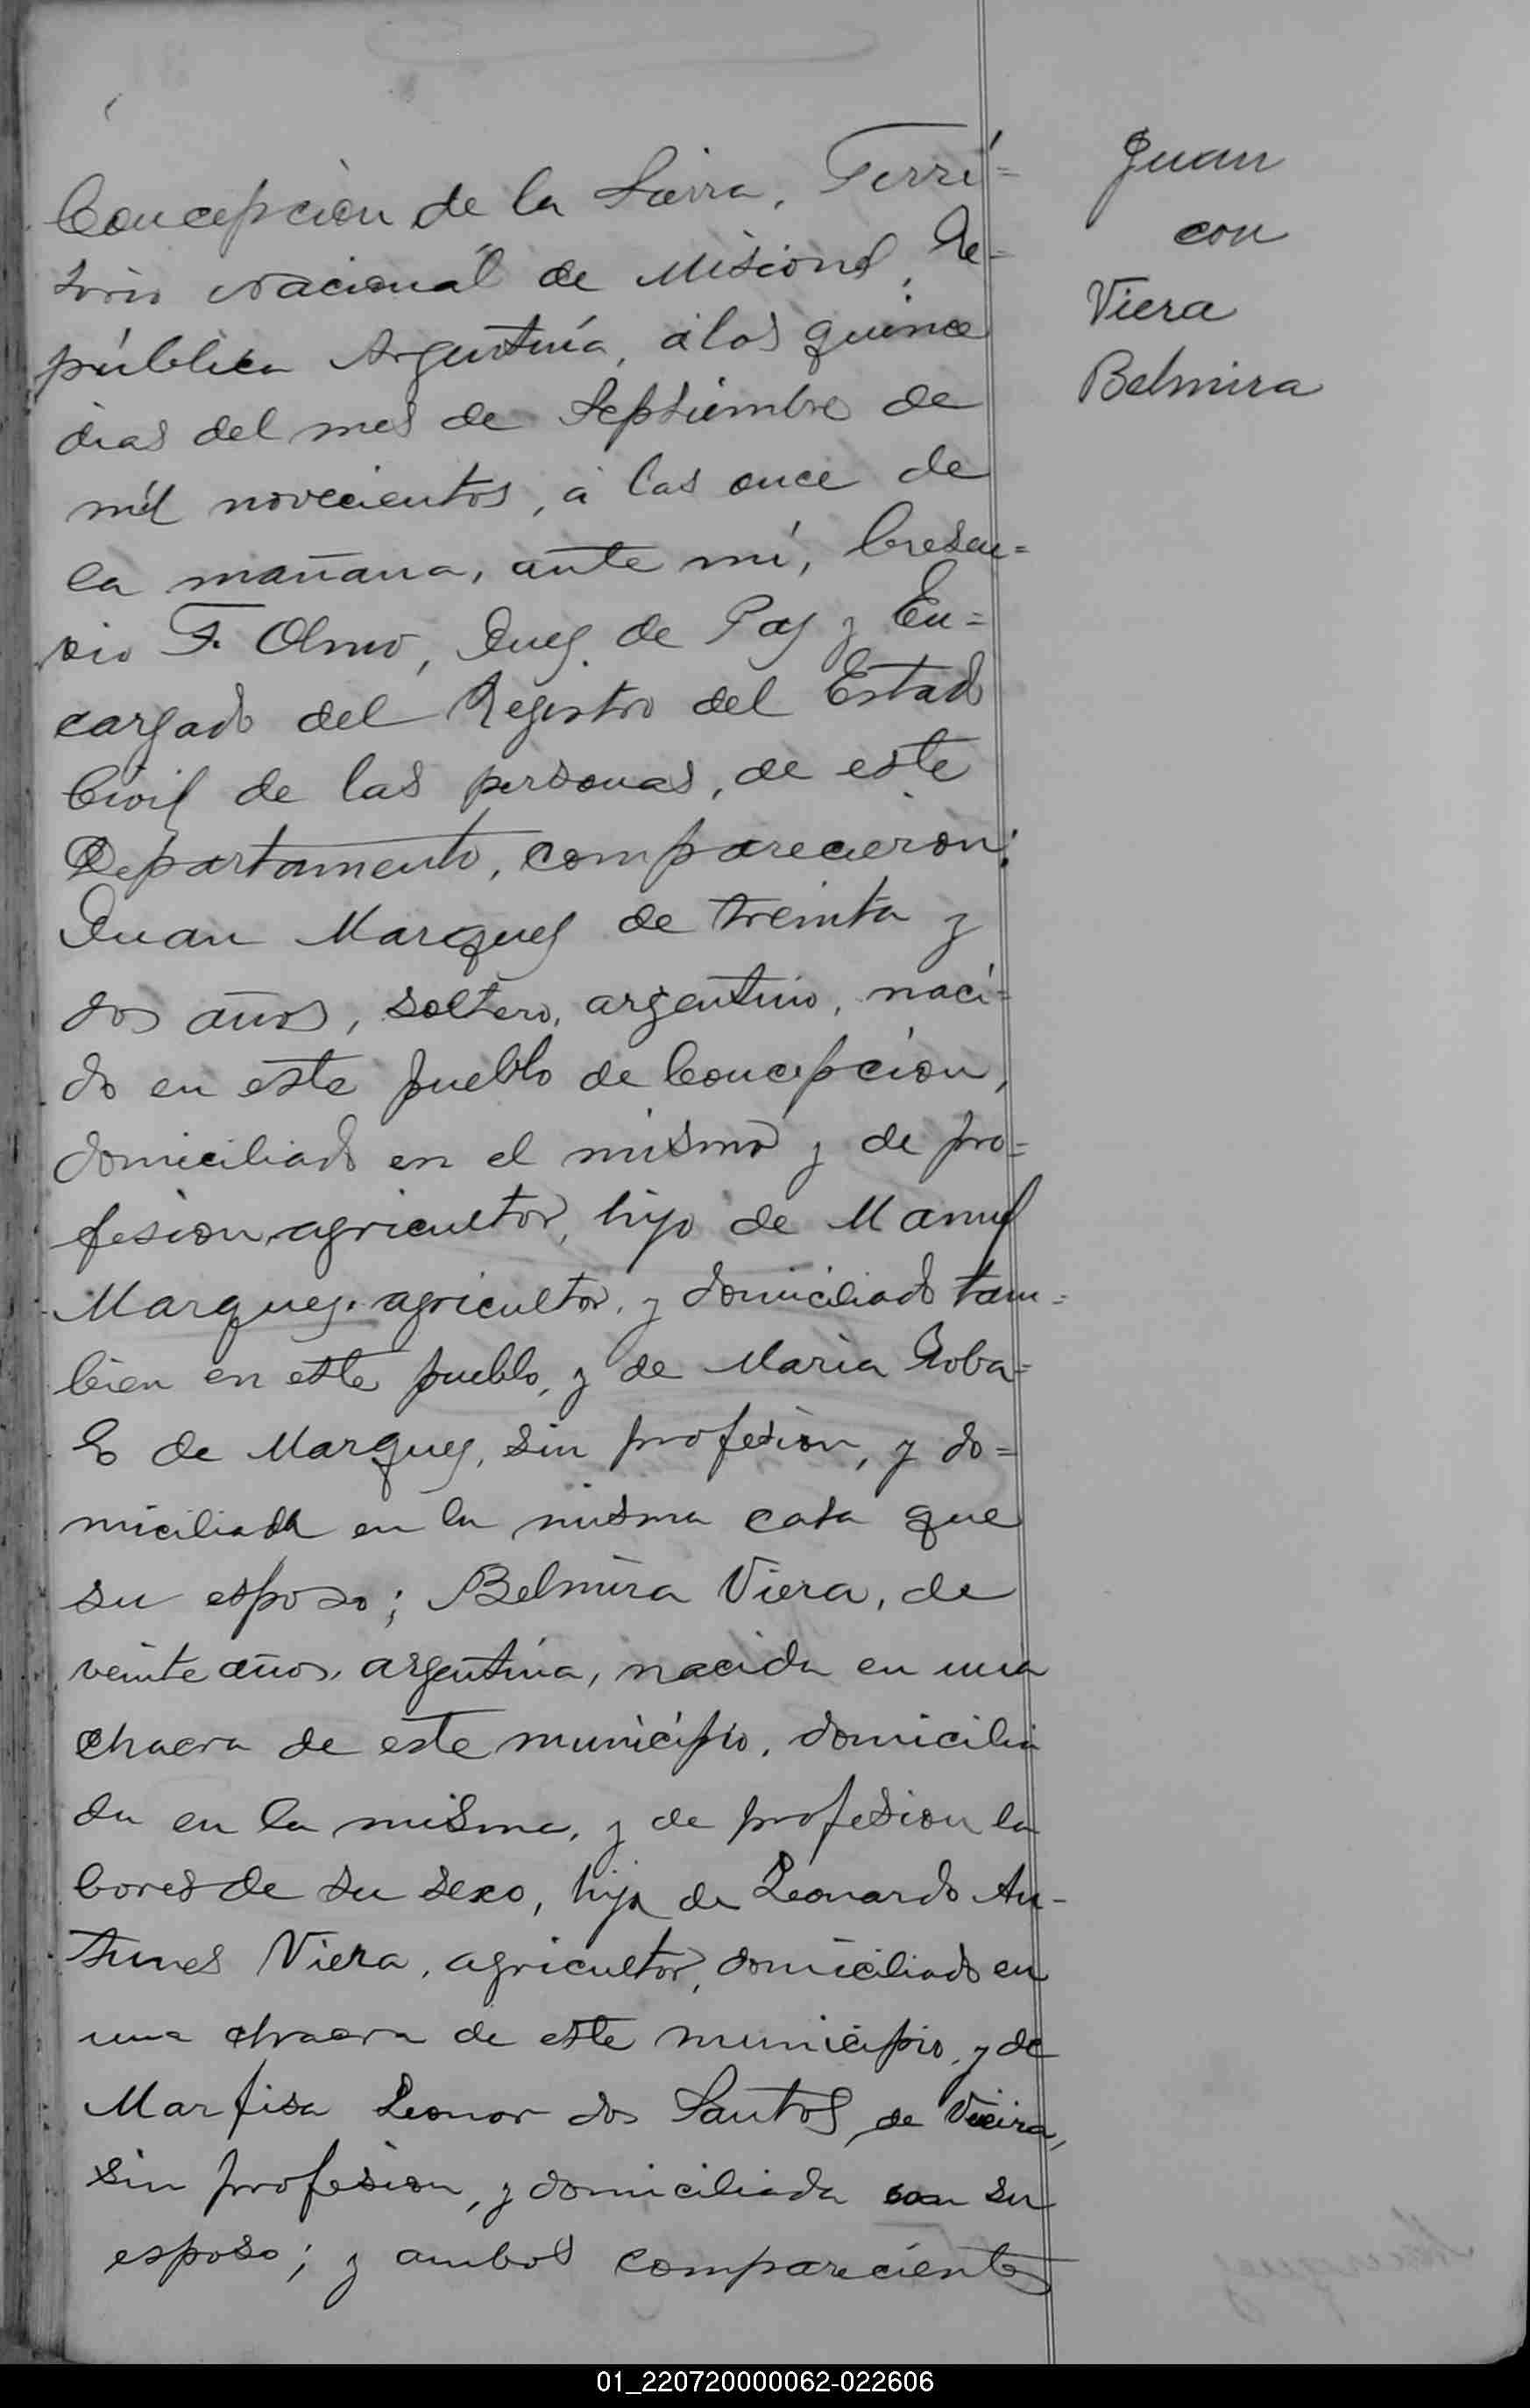 Concepción de la Sierra, Terri=
torio Nacional de Misiones, Re=
pública Argentina, á los quince
dias del mes de Septiembre de
mil novecientos, á las once de
la mañana, ante mí, Cresen=
sio F. Olmo, Juez de Paz y En=
cargado del Registro del Estado
Civil de las personas, de este
Departamento, comparecieron:
Juan Marquez de treinta y
dos años, soltero, argentino, naci=
do en este pueblo de Concepción,
domiciliado en el mismo y de pro=
fesion agricultor, hijo de Manuel
Marquez, agricultor, y domiciliado tam=
bien en este pueblo, y de Maria Roba=
lo de Marquez, sin profesion, y do=
miciliada en la misma casa que
su esposo; Belmira Viera, de
veinte años, argentina, nacida en una
chacra de este municipio, domicilia
da en la misma, y de profesion la
bores de su sexo, hija de Leonardo An-
tunes Viera, agricultor, domiciliado en
una chacra de este municipio, y de
Marfisa Leonor dos Santos de Vieira,
sin profesion, y domiciliada con su
esposo; y ambos comparecientes
Juan
con
Viera
Belmira
01_220720000062-022606